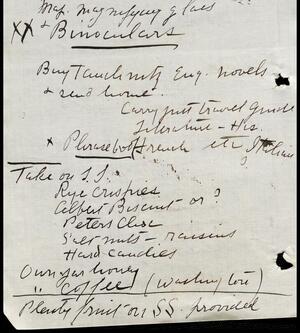 Map. magnifying glass
XX + Binoculars
Buy Tauchnitz Eng. novels
& send home.
Carry just travel guide
Literature - His.
x Phrase book French etc Italian
Take on S.S.
Rye Crispies
Albert Biscuit - or ?
Peters Choc
Salt nuts - raisins
Hard candies
Own jar honey
" Coffee (Washington)
Plenty fruit on SS provided